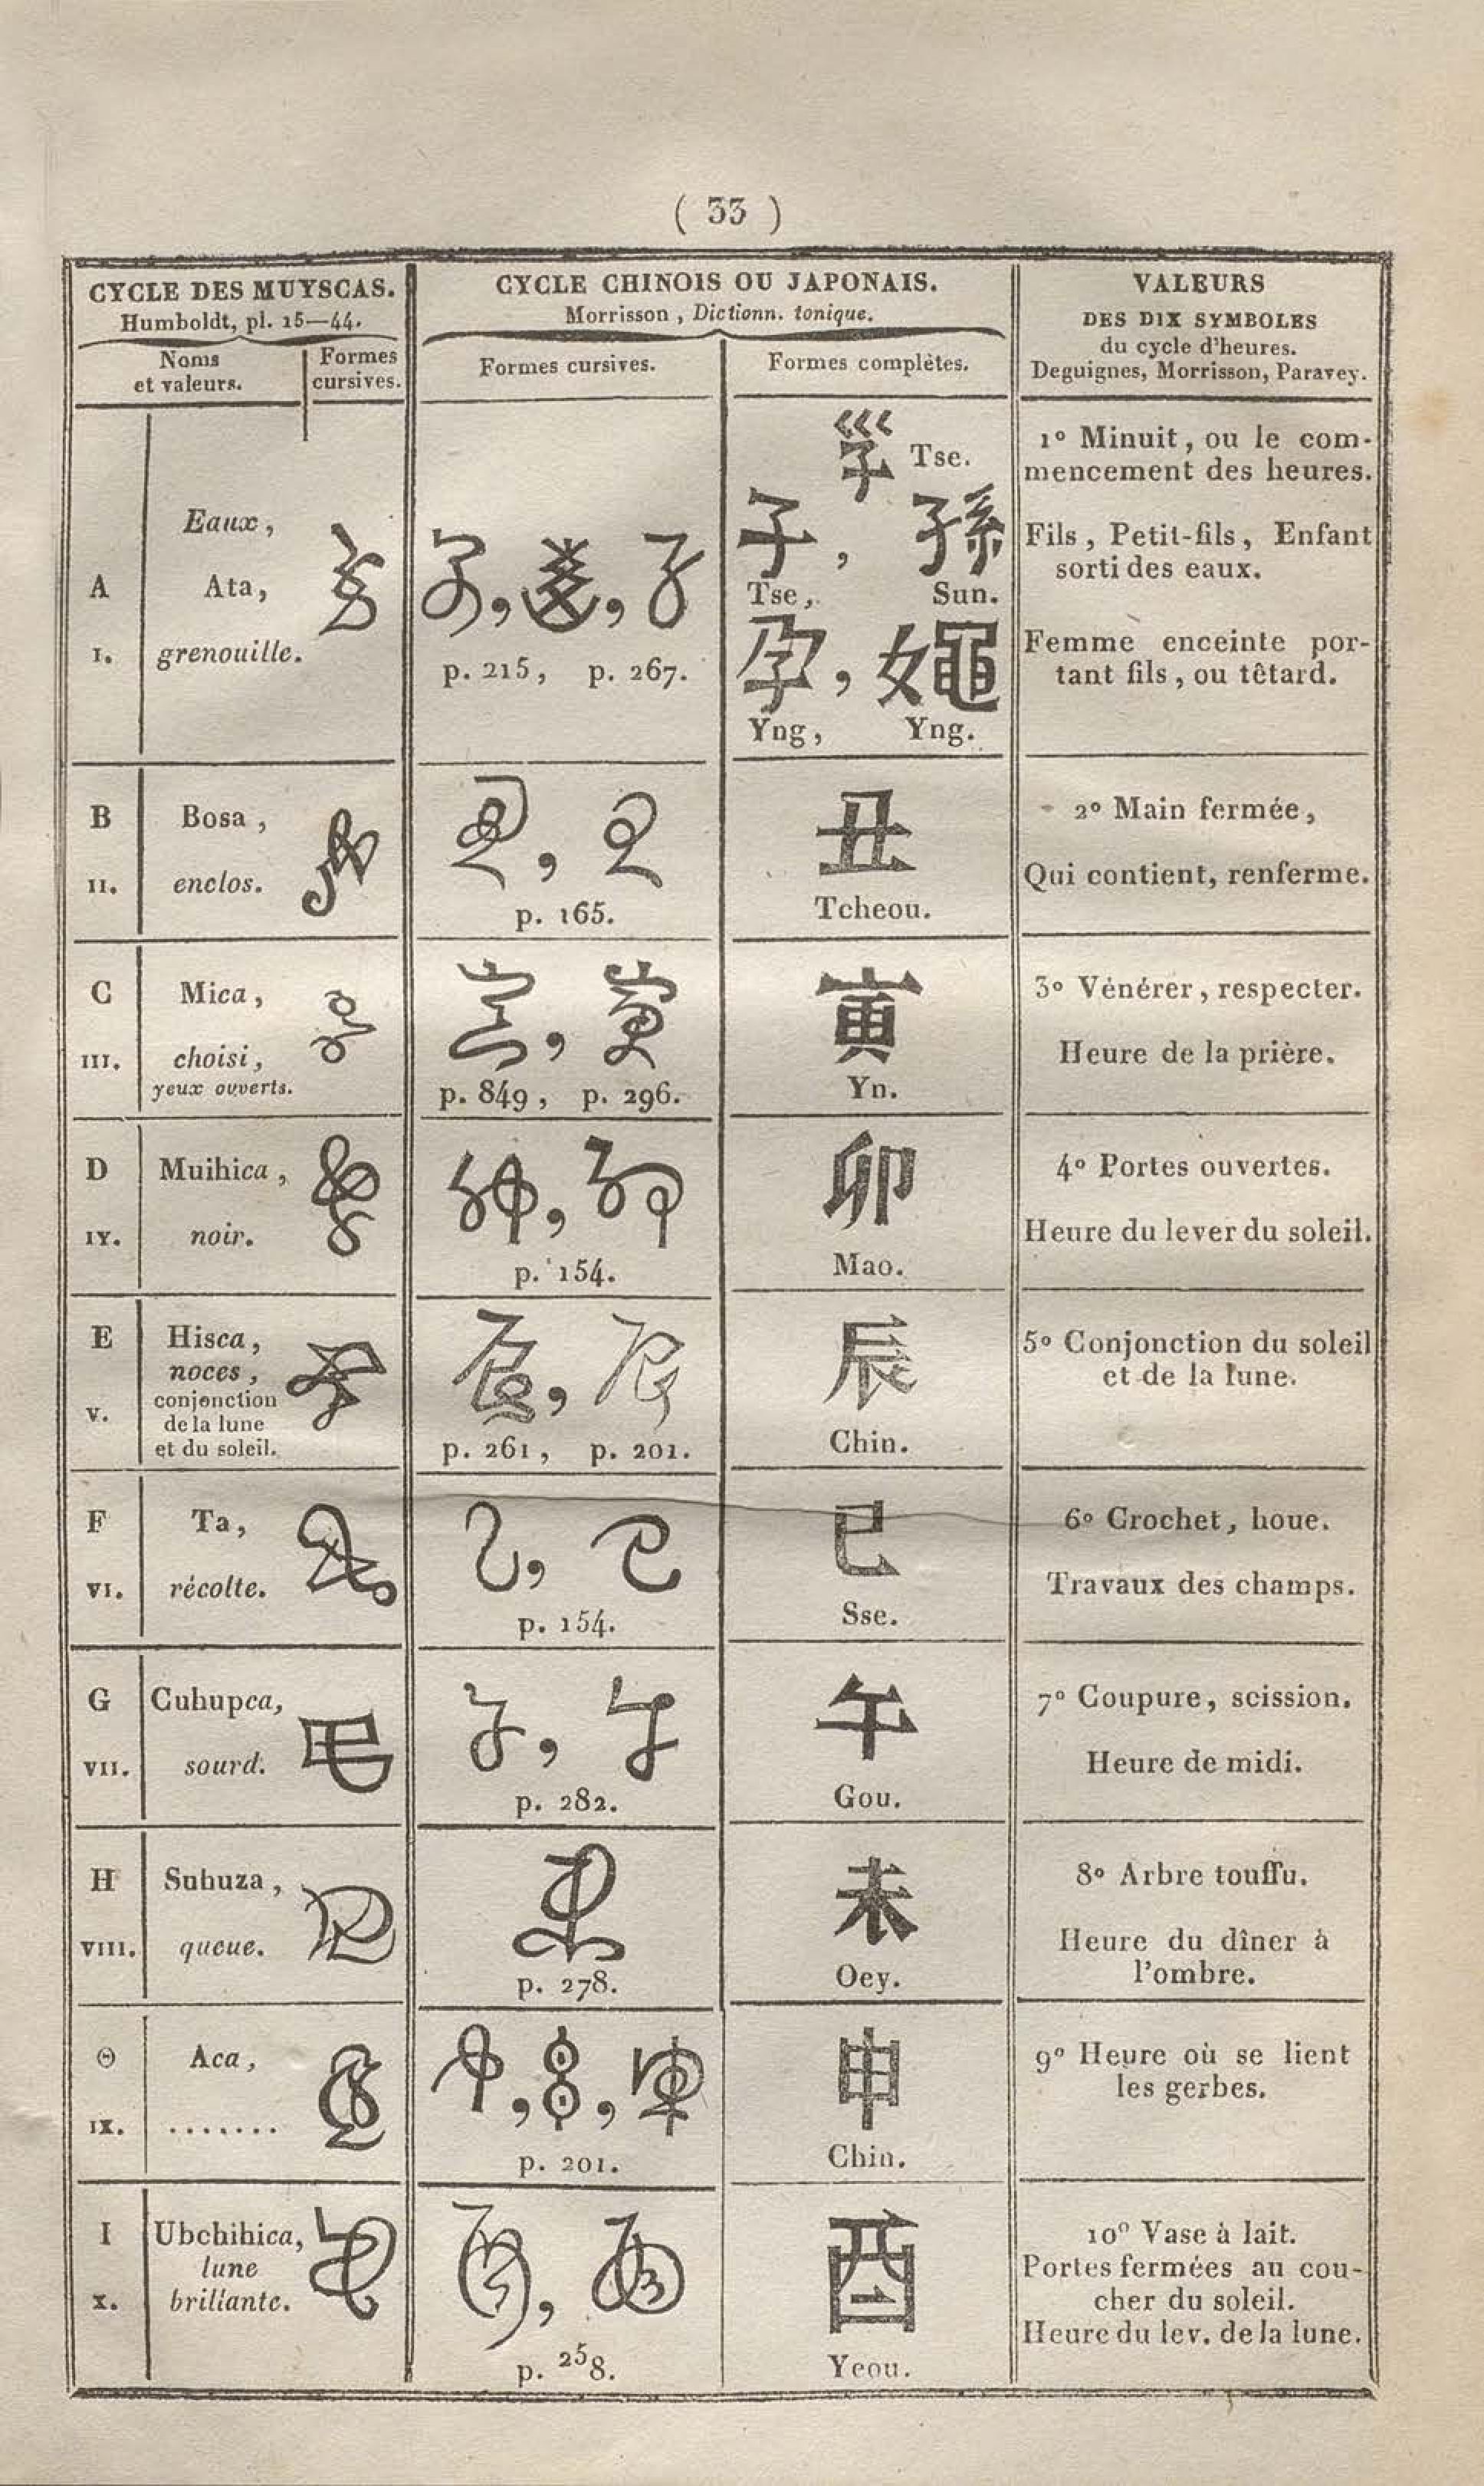 ( 33 )
CYCLE DES MUYSCAS.
Humboldt, pl. 15—44.
Noms
et valeurs.
Formes
cursives.
CYCLE CHINOIS OU JAPONAIS.
Morrisson, Dictionn. tonique.
Formes cursives.
Formes complètes.
VALEURS
DES DIX SYMBOLES
du cycle d'heures.
Deguignes, Morrisson, Paravey.
A
I.
Eaux,
Ata,
grenouille.
p. 215, p. 267.
Tse.
子, 孫
Tse, Sun.
孕,
Yng, Yng.
1º Minuit, ou le com-
mencement des heures.
Fils, Petit-fils, Enfant
sorti des eaux.
Femme enceinte por-
tant fils, ou têtard.
B
II.
Bosa,
enclos.
p. 165.
丑
Tcheou.
2º Main fermée,
Qui contient, renferme.
C
III.
Mica,
choisi,
yeux ouverts.
p. 849, p. 296.
寅
Yn.
3º Vénérer, respecter.
Heure de la prière.
D
IV.
Muihica,
noir.
p. 154.
卯
Mao.
4º Portes ouvertes.
Heure du lever du soleil.
E
V.
Hisca,
noces,
conjonction
de la lune
et du soleil.
p. 261, p. 201.
辰
Chin.
5º Conjonction du soleil
et de la lune.
F
VI.
Ta,
récolte.
p. 154.
巳
Sse.
6º Crochet, houe.
Travaux des champs.
G
VII.
Cuhupca,
sourd.
p. 282.
午
Gou.
7º Coupure, scission.
Heure de midi.
H
VIII.
Suhuza,
queue.
p. 278.
未
Oey.
8º Arbre touffu.
Heure du dîner à
l'ombre.
Θ
IX.
Aca,
.......
p. 201.
申
Chin.
9º Heure où se lient
les gerbes.
I
X.
Ubchihica,
lune
brillante.
p. 258.
酉
Yeou.
10º Vase à lait.
Portes fermées au cou-
cher du soleil.
Heure du lev. de la lune.